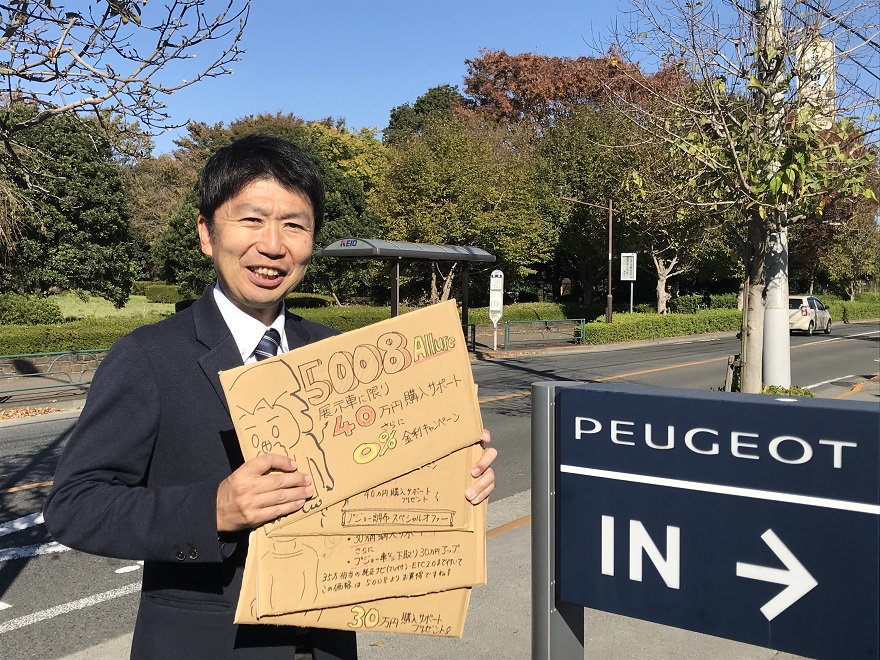 KEIO
5008 Allure
展示車に限り
40万円購入サポート
さらに
0% 金利キャンペーン
40万円購入サポート
プレゼント!
プジョー調布スペシャルオファー
30万円購入サポート
さらに
プジョー車も下取り30万円アップ
35万相当の純正ナビ(TV付) ETC2.0まで付いて
この価格は5008よりお買得ですね!
30万円購入サポート
プレゼント!
PEUGEOT
IN →